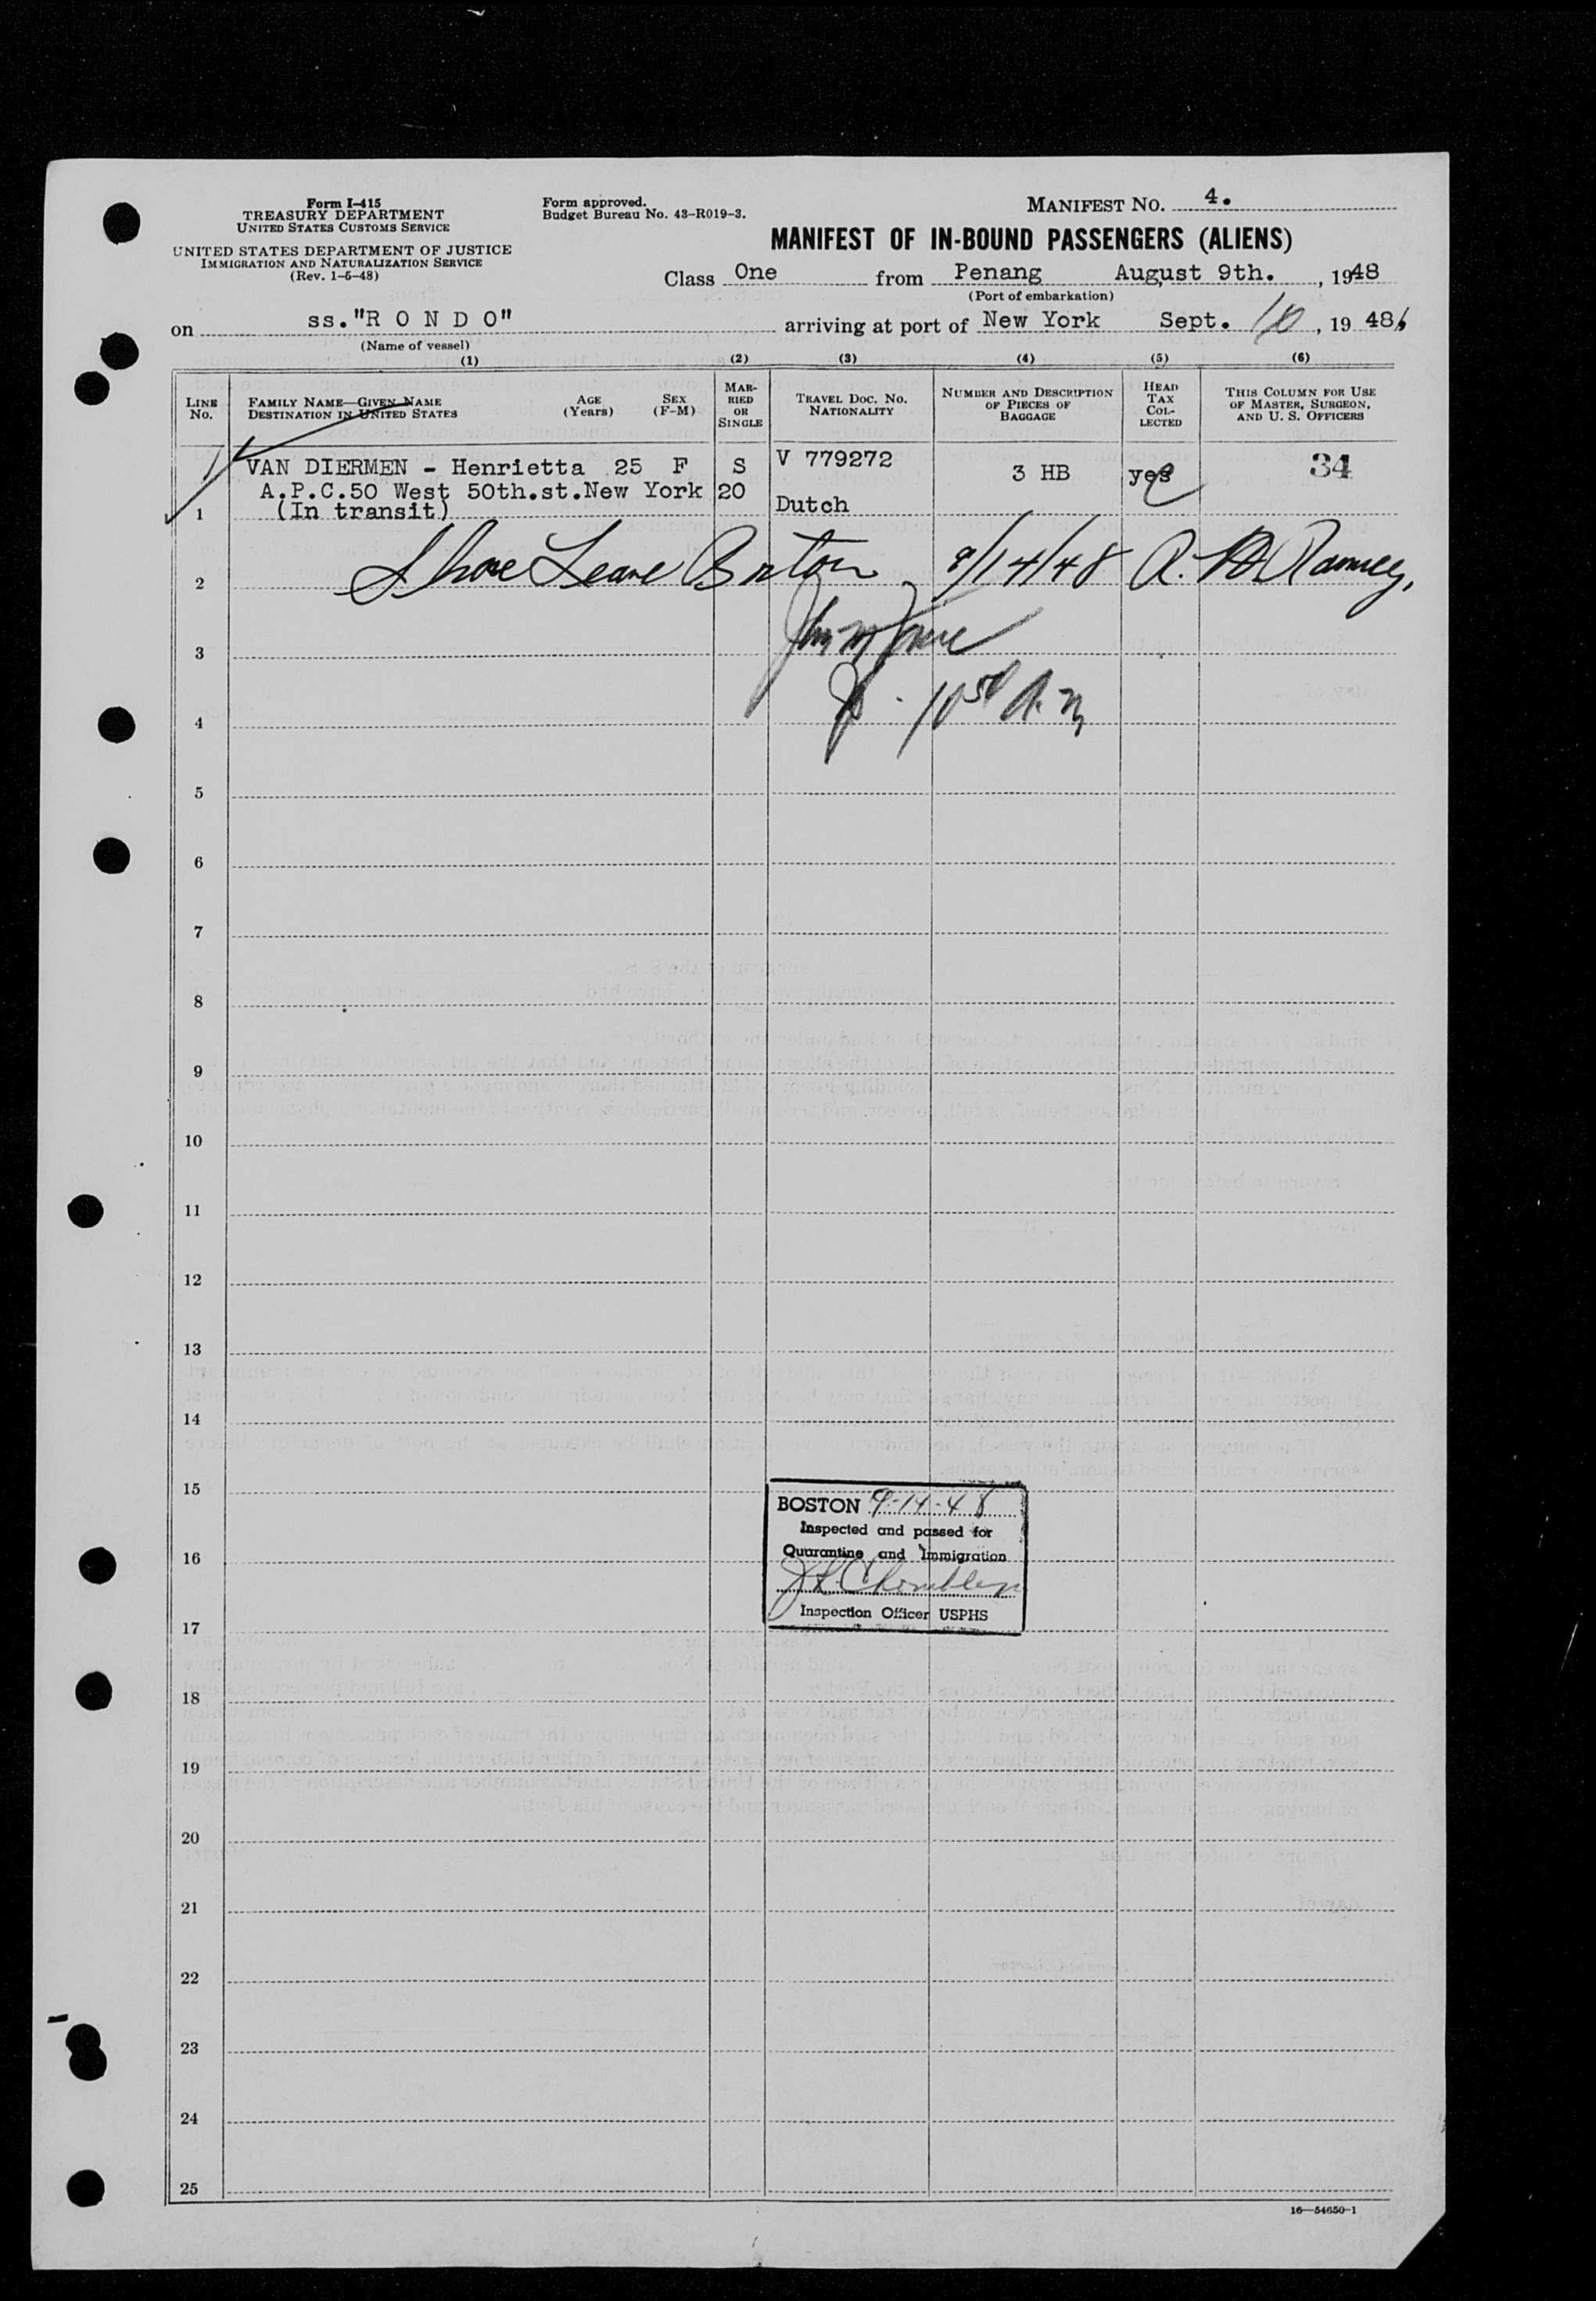 Form I-415
TREASURY DEPARTMENT
UNITED STATES CUSTOMS SERVICE
UNITED STATES DEPARTMENT OF JUSTICE
IMMIGRATION AND NATURALIZATION SERVICE
(Rev. 1-5-48)
Form approved.
Budget Bureau No. 43-R019-3.
MANIFEST NO. 4.
MANIFEST OF IN-BOUND PASSENGERS (ALIENS)
Class One from Penang August 9th. , 1948
(Port of embarkation)
on ss."R O N D O" arriving at port of New York Sept. , 19 48
(Name of vessel)
(1) (2) (3) (4) (5) (6)
LINE No.
FAMILY NAME—GIVEN NAME
DESTINATION IN UNITED STATES
AGE (Years)
SEX (F-M)
MARRIED OR SINGLE
TRAVEL DOC. NO. NATIONALITY
NUMBER AND DESCRIPTION OF PIECES OF BAGGAGE
HEAD TAX COLLECTED
THIS COLUMN FOR USE OF MASTER, SURGEON, AND U. S. OFFICERS
VAN DIERMEN - Henrietta 25 F S V 779272 3 HB yes 34
A.P.C.50 West 50th.st.New York 20
1 (In transit) Dutch
2 Shore Leave Boston 9/14/48
3
4 10 50 A.M
5
6
7
8
9
10
11
12
13
14
15
BOSTON 9-14-48
Inspected and passed for
16
Quarantine and Immigration
Inspection Officer USPHS
17
18
19
20
21
22
23
24
25
16—54650-1